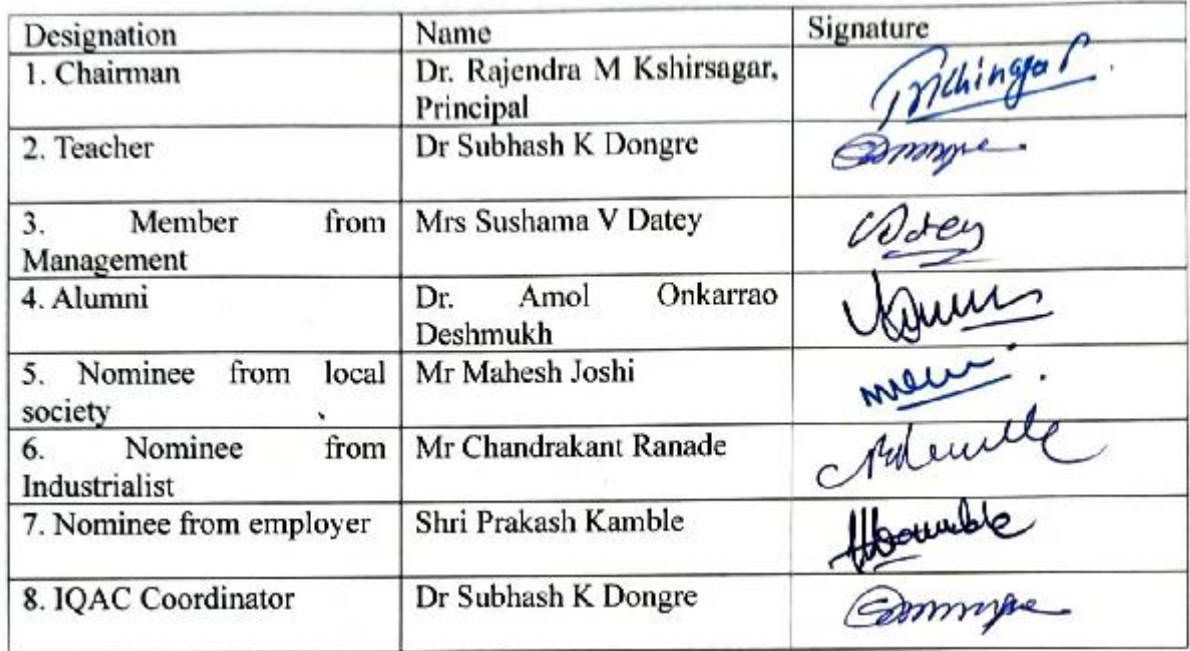 Designation Name Signature
1. Chairman Dr. Rajendra M Kshirsagar,
Principal
2. Teacher Dr Subhash K Dongre
3. Member from Mrs Sushama V Datey
Management
4. Alumni Dr. Amol Onkarrao
Deshmukh
5. Nominee from local Mr Mahesh Joshi
society
6. Nominee from Mr Chandrakant Ranade
Industrialist
7. Nominee from employer Shri Prakash Kamble
8. IQAC Coordinator Dr Subhash K Dongre